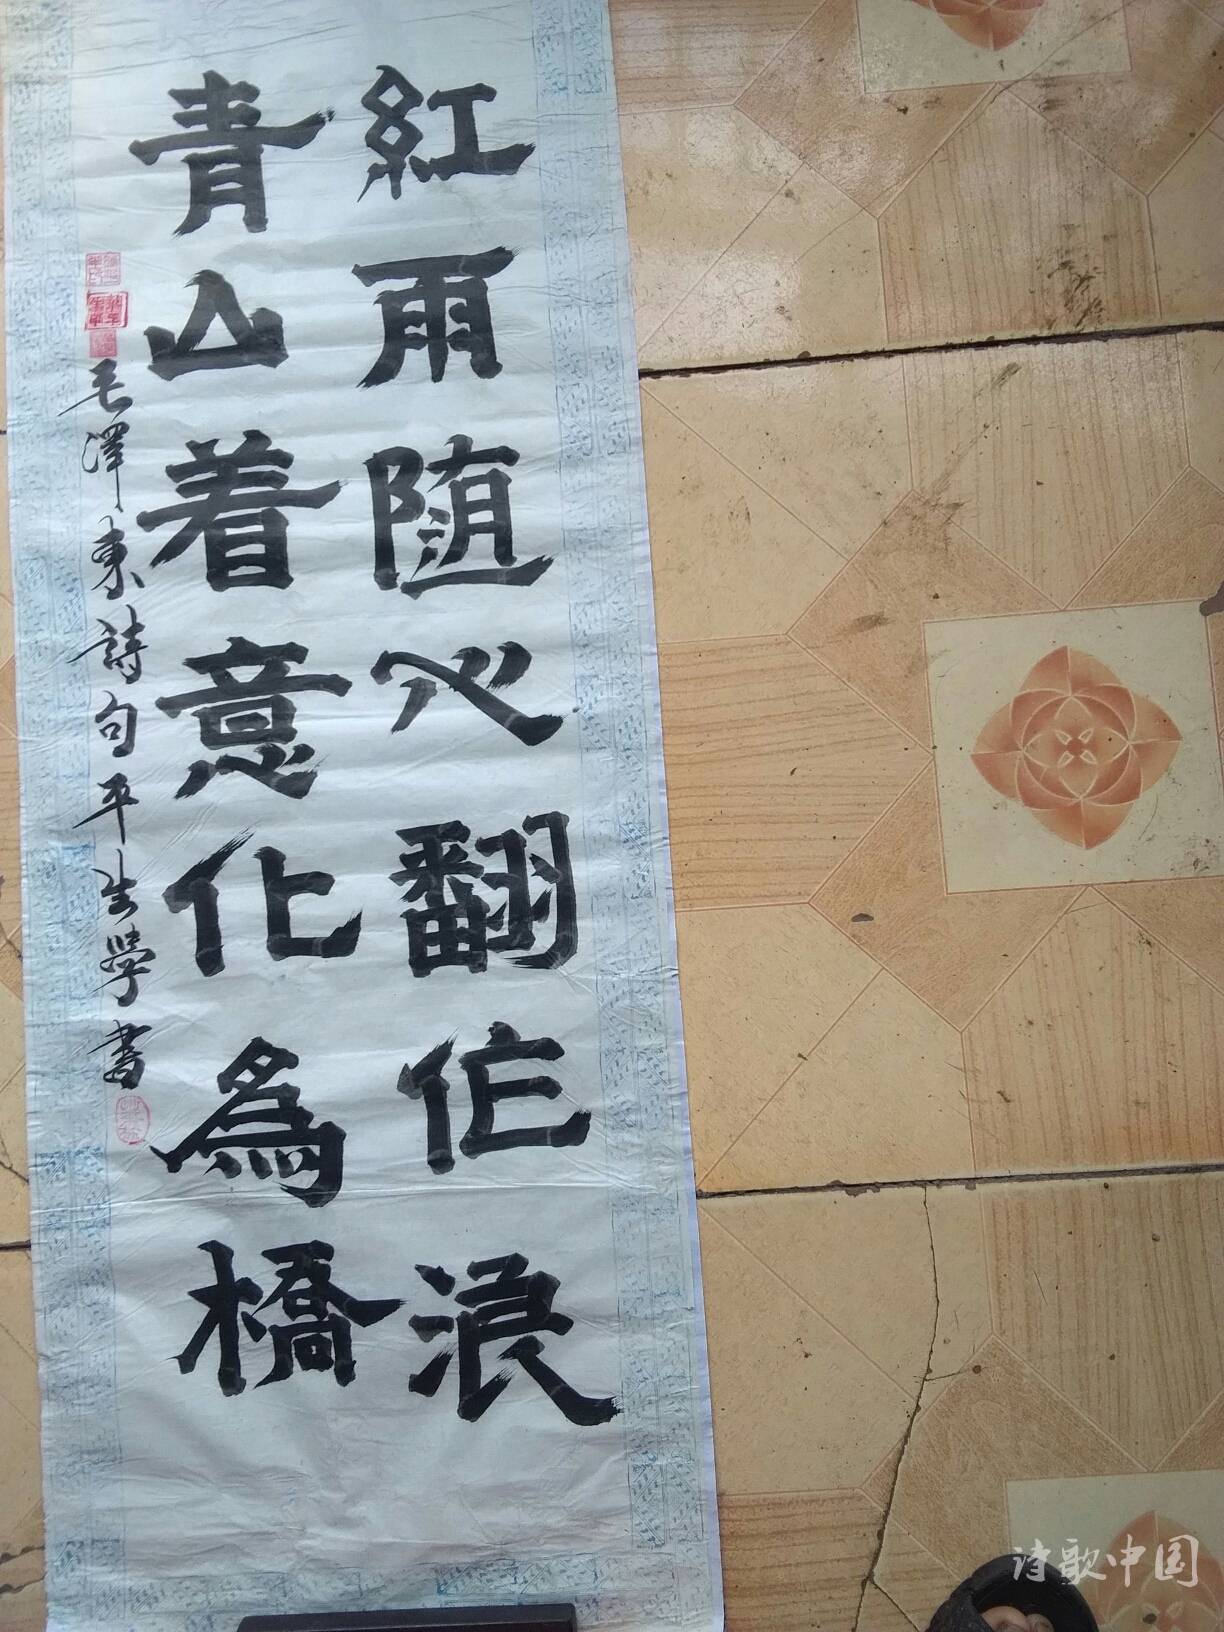 紅雨随心翻作浪
青山着意化為橋
毛澤東詩句平生學書
诗歌中国